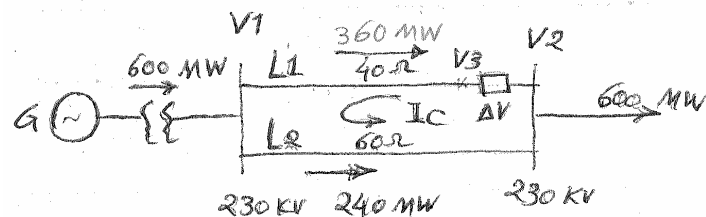 V1
360 MW
V2
600 MW
L1
40Ω
V3
G
~
IC
ΔV
600 MW
L2
60Ω
230 KV
240 MW
230 KV